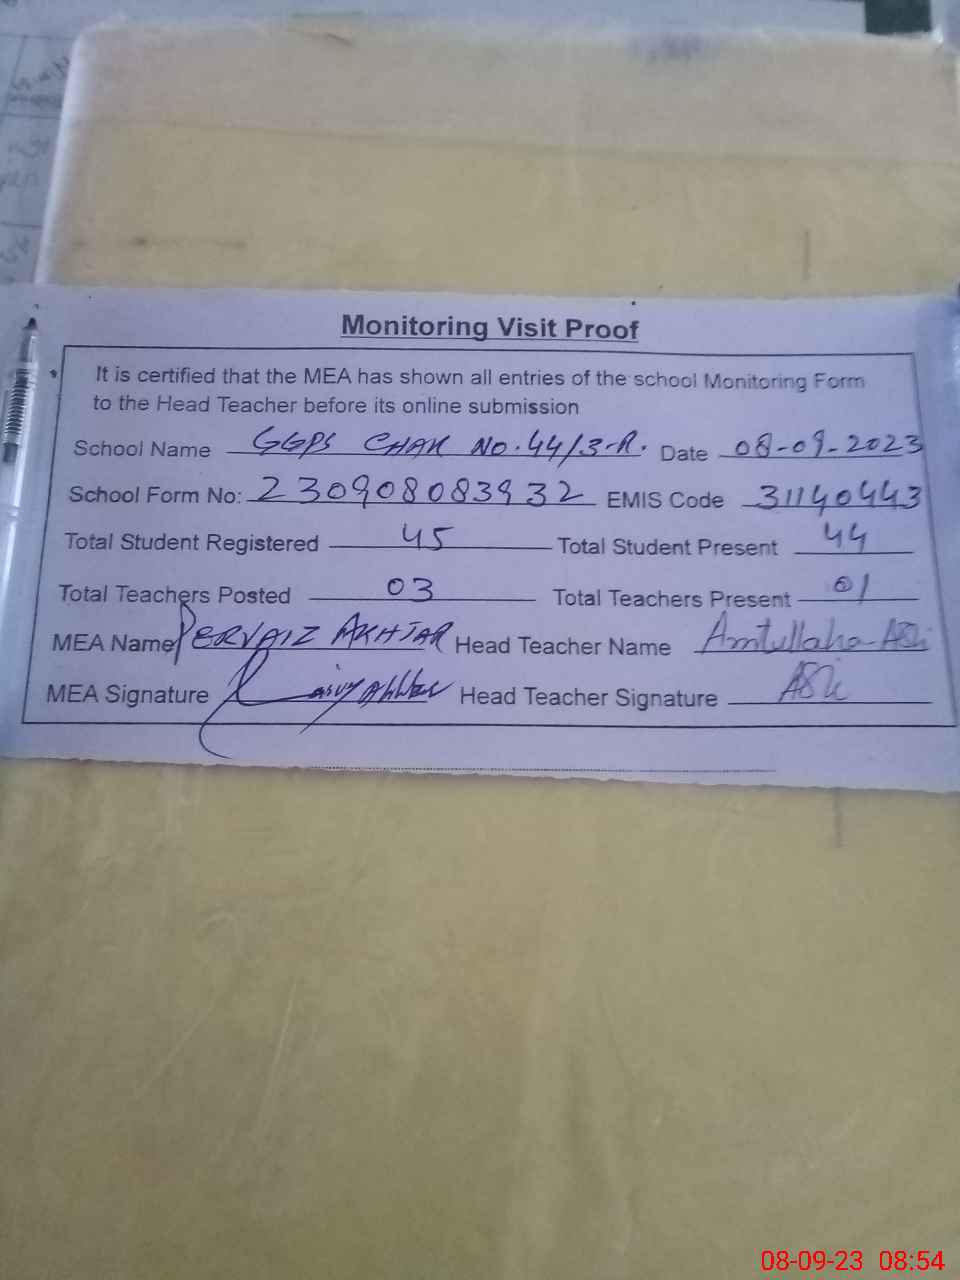 Monitoring Visit Proof
It is certified that the MEA has shown all entries of the school Monitoring Form
to the Head Teacher before its online submission
School Name GGPS CHAK NO.44/3-R. Date 08-09-2023
School Form No: 230908083932 EMIS Code 31140443
Total Student Registered 45 Total Student Present 44
Total Teachers Posted 03 Total Teachers Present 01
MEA Name PERVAIZ AKHTAR Head Teacher Name Amtullaha
MEA Signature Head Teacher Signature
08-09-23 08:54